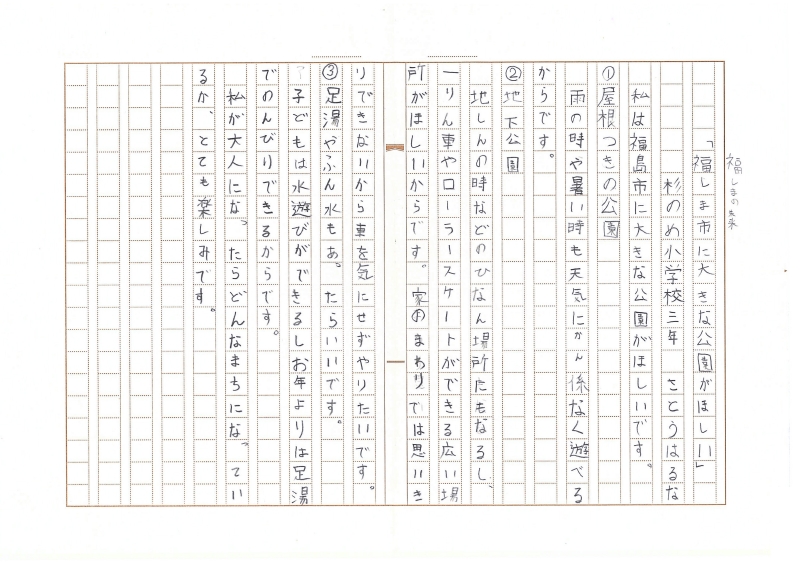 福しまの未来
「福しま市に大きな公園がほしい」
杉のめ小学校三年 さとうはるな
私は福島市に大きな公園がほしいです。
①屋根つきの公園
雨の時や暑い時も天気にかん係なく遊べる
からです。
②地下公園
地しんの時などのひなん場所にもなるし、
一りん車やローラースケートができる広い場
所がほしいからです。家のまわりでは思いき
りできないから車を気にせずやりたいです。
③足湯やふん水もあったらいいです。
子どもは水遊びができるしお年よりは足湯
でのんびりできるからです。
私が大人になったらどんなまちになってい
るか、とても楽しみです。